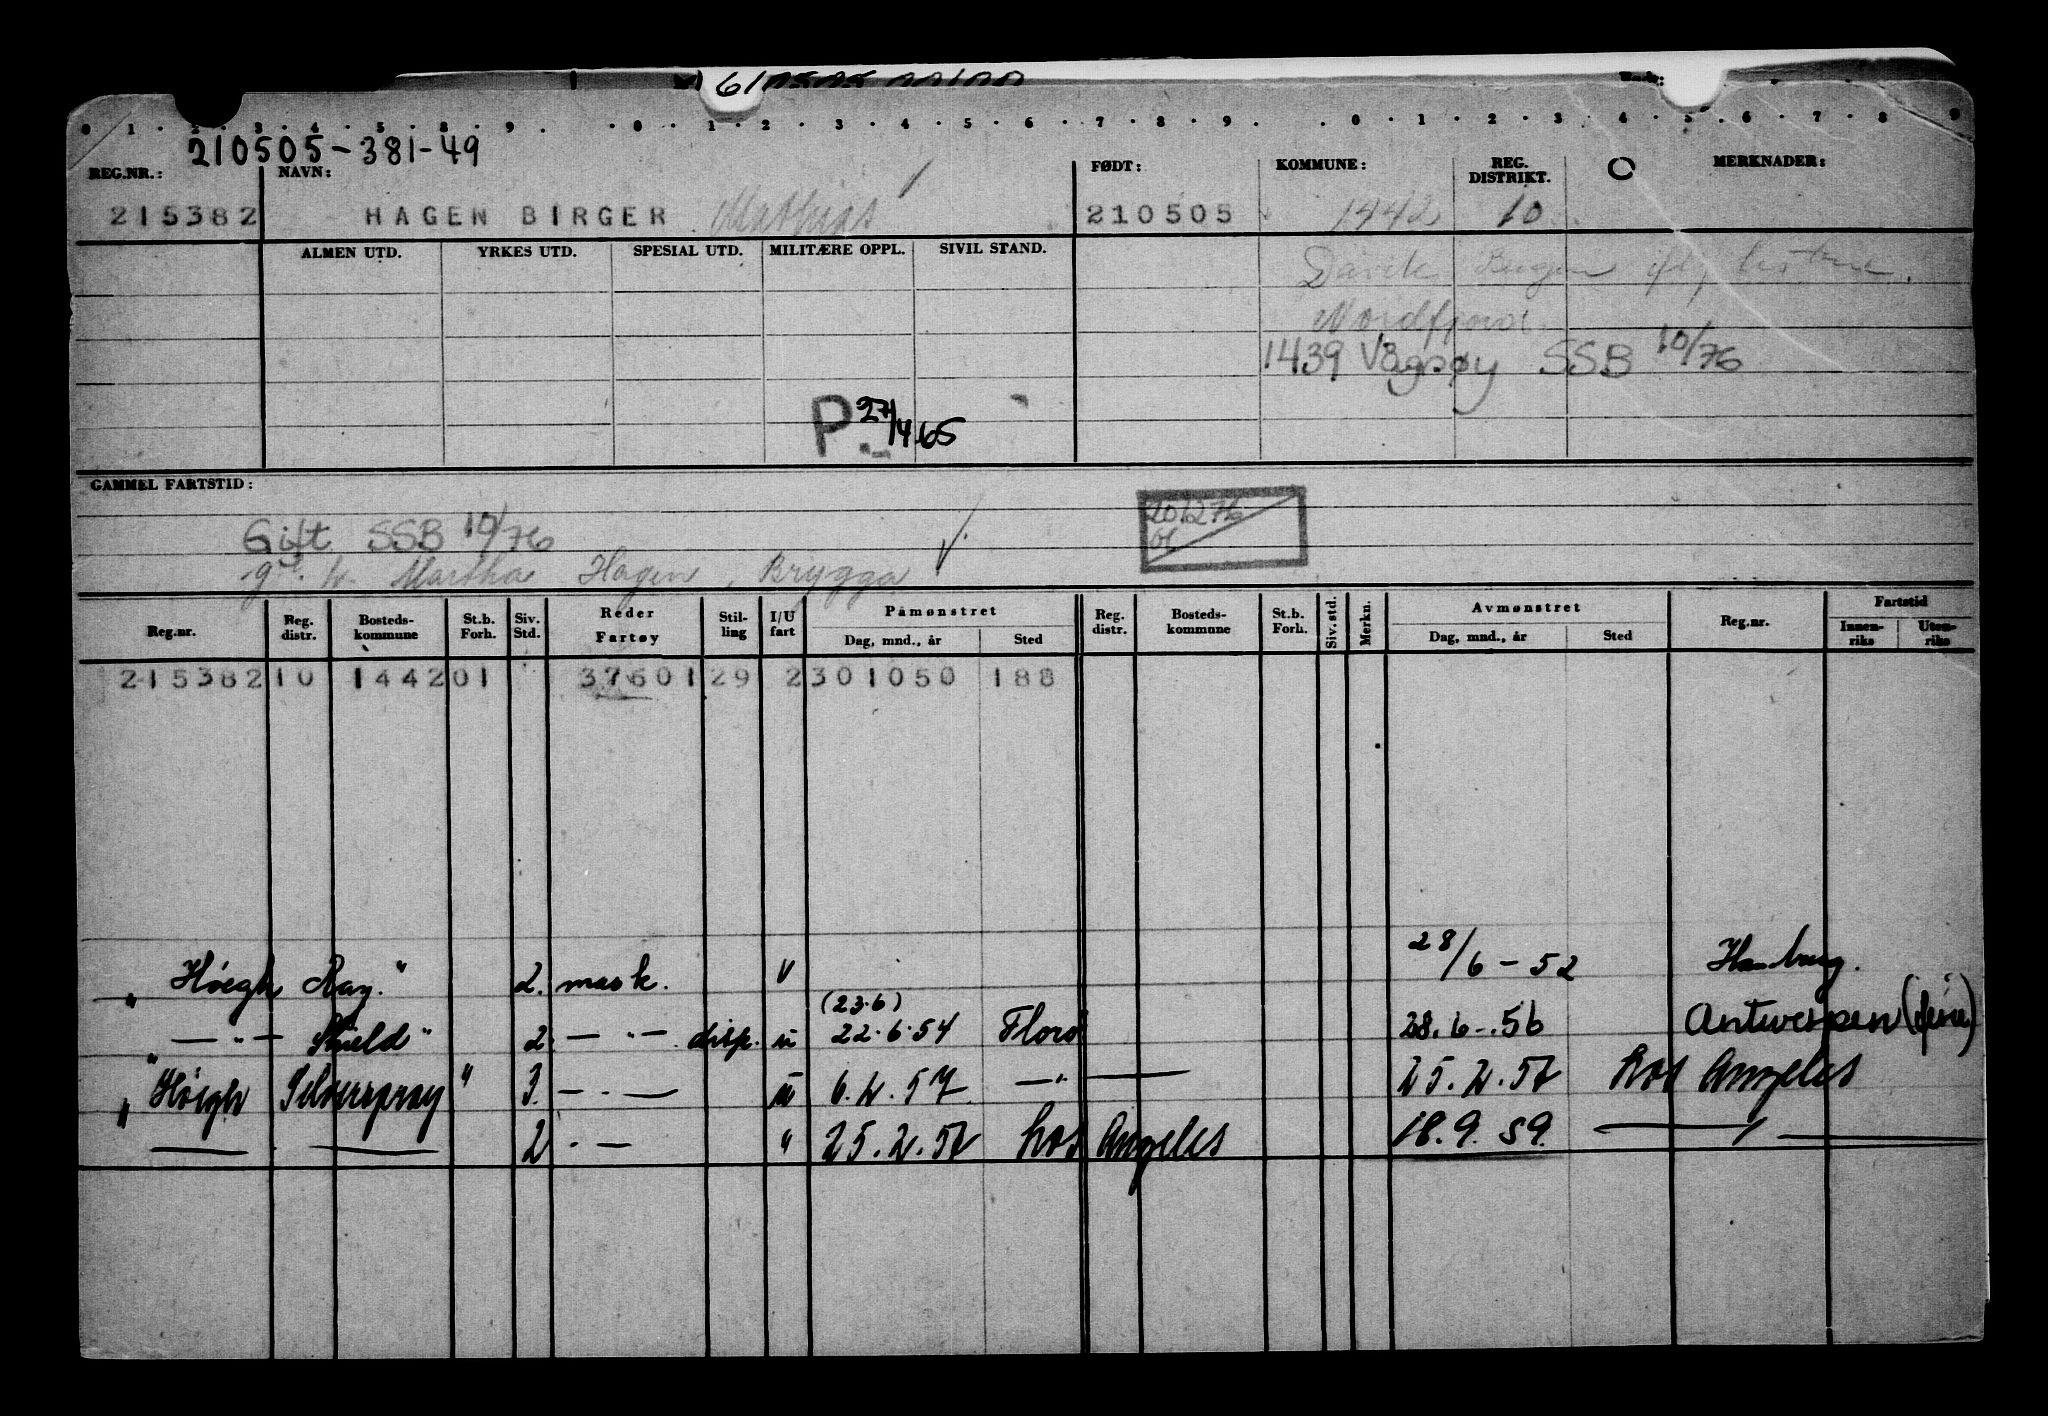 0 1 2 3 4 5 8 9 0 1 2 3 4 5 6 7 8 9 0 1 2 3 4 5 6 7 8 9
210505-381-49
REG.NR.: NAVN: FØDT: KOMMUNE: REG. DISTRIKT. MERKNADER:
215382 HAGEN BIRGER Mathias 210505 1442 10
ALMEN UTD. YRKES UTD. SPESIAL UTD. MILITÆRE OPPL. SIVIL STAND.
Davik
Nordfjord
1439 Vågsøy SSB 10/76
P. 27/4 65
GAMMEL FARTSTID:
201276
Gift SSB 10/76
Martha Hagen, Brygga
Reg.nr. Reg. distr. Bosteds-kommune St.b. Forh. Siv. Std. Reder Fartøy Stil-ling I/U fart Påmønstret Dag, mnd., år Sted Reg. distr. Bosteds-kommune St.b. Forh. Siv. std. Merkn. Avmønstret Dag, mnd., år Sted Reg.nr. Fartstid Innen-riks Uten-riks
215382 10 1442 01 37601 29 2 301050 188
" Høegh Ray." 2. mask. 28/6-52 Hamburg.
(23.6)
" —"— Shield" 2. —"— disp. u 22.6.54 Florø 28.6-.56 Antwerpen (ferie)
" Høegh Silverspray" 3. —"— u 6.2.57 —"— 25.2.57 Los Angeles
2 —"— " 25.2.57 Los Angeles 18.9.59.